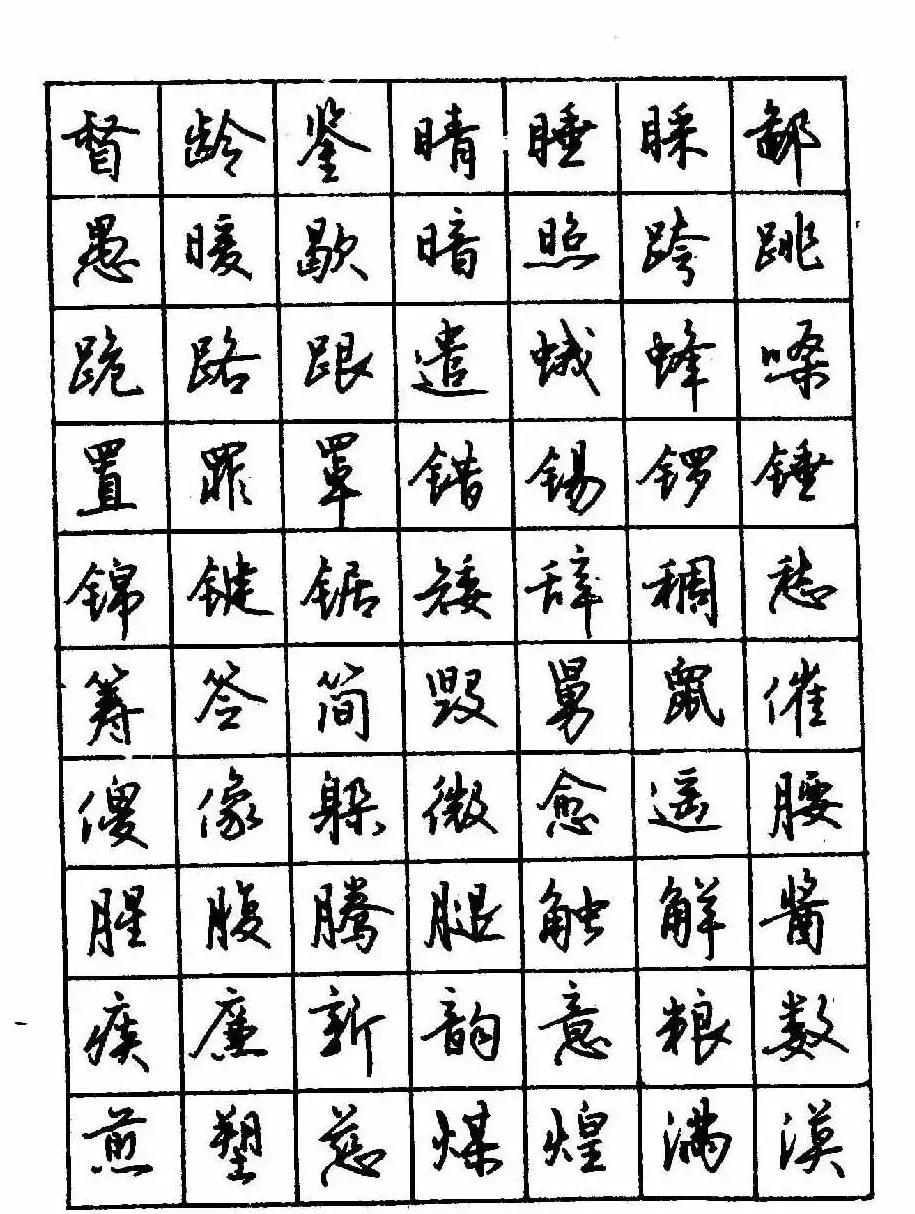 督龄鉴睛睡睬鄙
愚暖歇暗照跨跳
跪路跟遣蛾蜂嗓
置罪罩错锡锣锤
锦键锯矮辞稠愁
筹签简毁舅鼠催
傻像躲微愈遥腰
腥腹腾腿触解酱
痰廉新韵意粮数
煎塑慈煤煌满漠